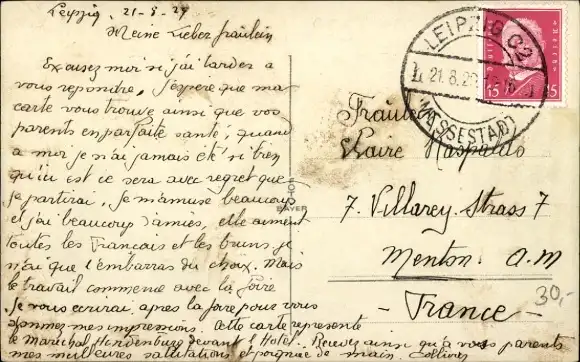 Leipzig, 21-8-29
Meine Lieber fraülein
Excusez moi si j'ai tarder a
vous repondre, j'espère que ma
carte vous trouve ainsi que vos
parents en parfaite santé; quand
a moi je n'ai jamais été si bien
qu'ici et ce sera avec regret que
je partirai, je m'amuse beaucoup
et j'ai beaucoup d'amies, elle aiment
toutes les Francais et les bruns, je
n'ai que l'embarras du choix. Mais
le travail commence avec la foire
je vous ecrirai, après la foire pour vous
donner mes impressions. Cette carte represente
le Marechal Hindenburg devant l'Hotel. Recevez ainsi qu'à vos parents
mes meilleures salutations et poignée de main
LEIPZIG C2
21.8.29
MESSESTADT
15 15
Fräulein
Claire
7. Villarey-Strass 7
Menton. A.M
- France -
30,-
BAYER